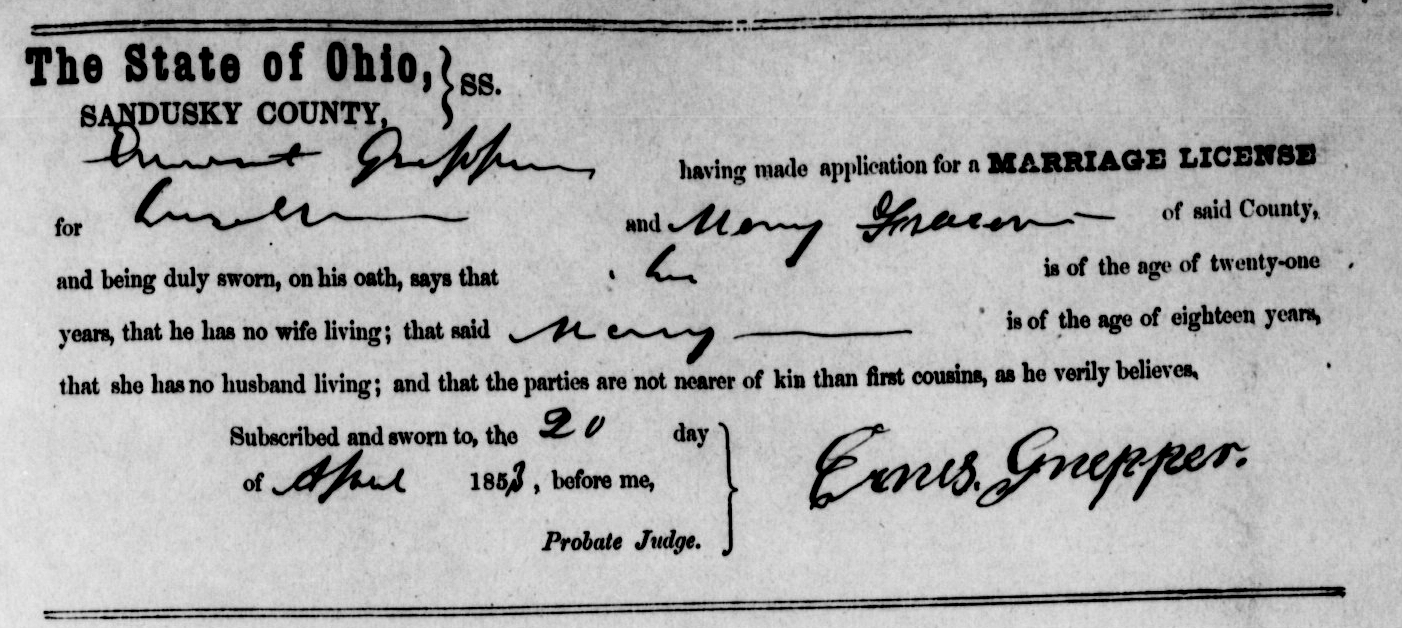 The State of Ohio, } ss.
SANDUSKY COUNTY,
Gnepper having made application for a MARRIAGE LICENSE
for himself and Mary of said County,
and being duly sworn, on his oath, says that he is of the age of twenty-one
years, that he has no wife living; that said Mary is of the age of eighteen years,
that she has no husband living; and that the parties are not nearer of kin than first cousins, as he verily believes.
Subscribed and sworn to, the 20 day
of April 1853, before me,
Probate Judge.
Gnepper.